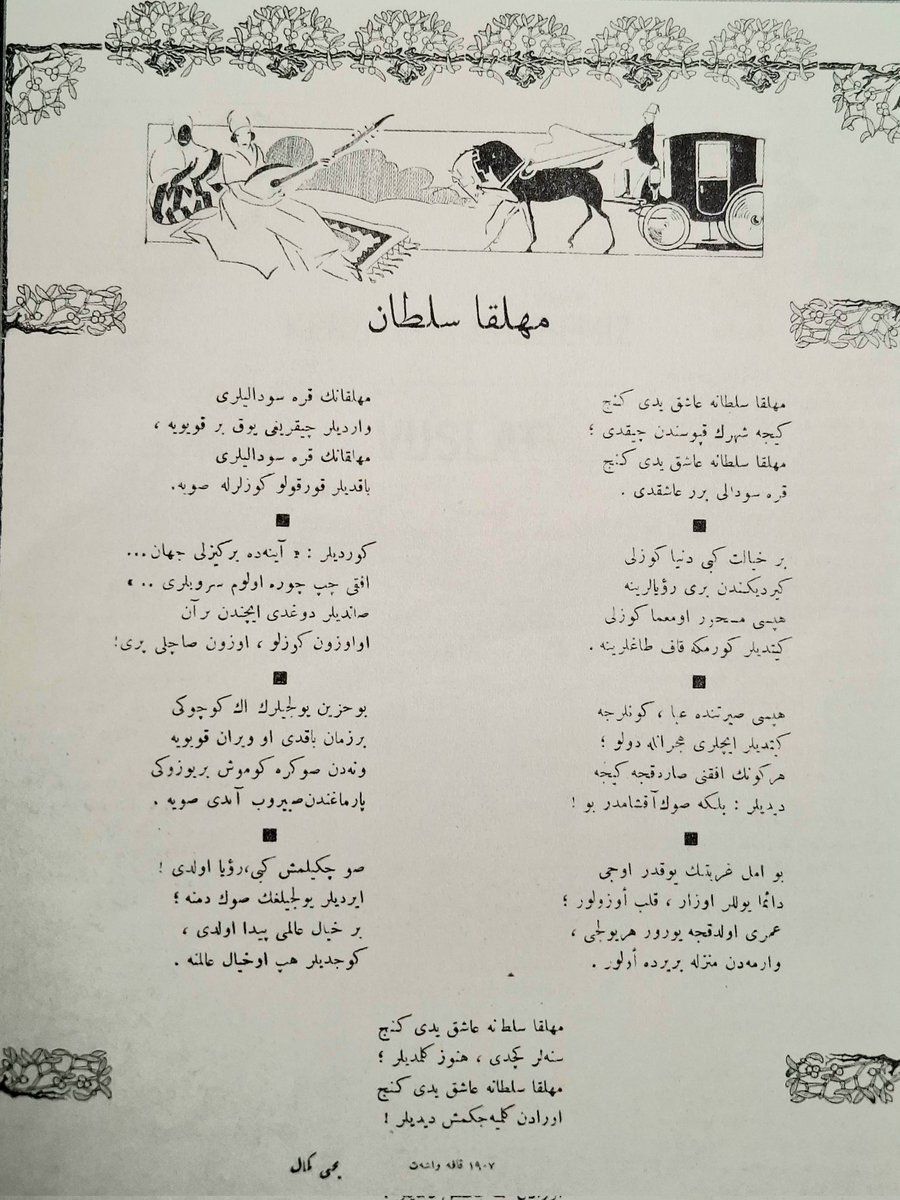 مهلقا سلطان
مهلقا سلطانه عاشق يدى كنج
كيجه شهرك قپوسندن چيقدى ؛
مهلقا سلطانه عاشق يدى كنج
قره سودالى برر عاشقدى .
بر خيالت كبى دنيا كوزلى
كيرديكندن برى رؤيالرينه
هپسى مسحور او معما كوزلى
كيتديلر كورمكه قاف طاغلرينه .
هپسى صيرتنده عبا ، كونلرجه
كيتديلر ايچلرى هجرانله دولو ؛
هركونك افقنى صاردقجه كيجه
ديديلر : بلكه صوك آقشامدر بو !
بو امل غربتنك يوقدر اوجى
دائما يوللر اوزار ، قلب أوزولور ؛
عمرى اولدقجه يورور هريولجى ،
وارمه‌دن منزله بريرده أولور .
مهلقانك قره سوداليلرى
وارديلر چيقريغى يوق بر قويويه ،
مهلقانك قره سوداليلرى
باقديلر قورقولو كوزلرله صويه.
كورديلر : « آينه‌ده بركيزلى جهان...
افقى چپ چوره اولوم سرويلرى .. »
صانديلر دوغدى ايچندن برآن
او اوزون كوزلو ، اوزون صاچلى پرى!
بو حزين يولجيلرك اك كوچوكى
برزمان باقدى او ويران قويويه
ونه‌دن صوكره كوموش بريوزوكى
پارماغندن صييروب آتدى صويه .
صو چكيلمش كبى،رؤيا اولدى !
ايرديلر يولجيلغك صوك دمنه ؛
بر خيال عالمى پيدا اولدى ،
كوچديلر هپ اوخيال عالمنه .
مهلقا سلطانه عاشق يدى كنج
سنه‌لر كچدى ، هنوز كلمديلر ؛
مهلقا سلطانه عاشق يدى كنج
اورادن كلميه‌جكمش ديديلر !
١٩٠٧ قافه واشه‌ت
يحيى كمال